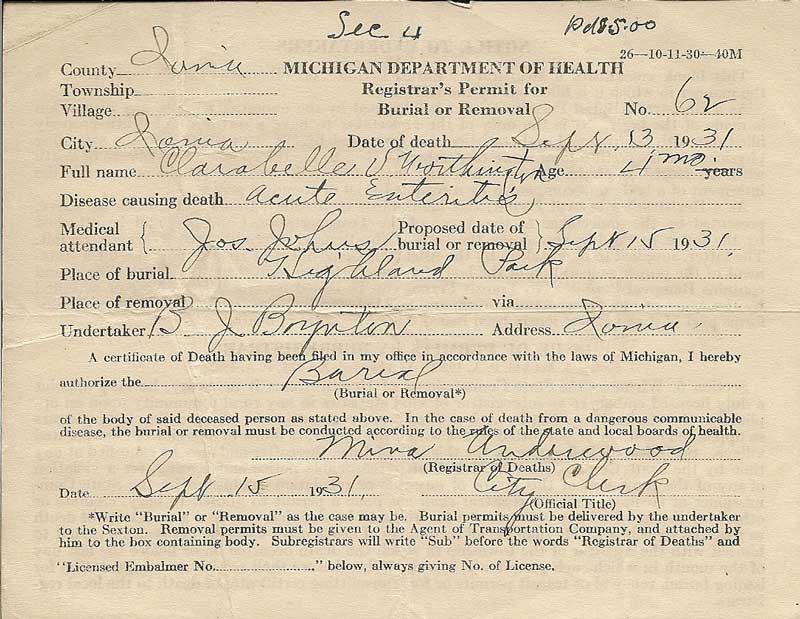 Sec 4 Pd $5.00
26—10-11-30—40M
County Ionia MICHIGAN DEPARTMENT OF HEALTH
Township Registrar's Permit for
Village Burial or Removal No. 62
City Ionia Date of death Sept 13 1931
Full name Clarabelle V Worthington Age 4 mo. years
Disease causing death Acute Enteritis
Medical attendant { Jos. Johns Proposed date of burial or removal } Sept 15 1931.
Place of burial Highland Park
Place of removal via
Undertaker B J Boynton Address Ionia
A certificate of Death having been filed in my office in accordance with the laws of Michigan, I hereby
authorize the Burial
(Burial or Removal*)
of the body of said deceased person as stated above. In the case of death from a dangerous communicable
disease, the burial or removal must be conducted according to the rules of the state and local boards of health.
Mina Underwood
(Registrar of Deaths)
Date Sept 15 1931. City Clerk
(Official Title)
*Write "Burial" or "Removal" as the case may be. Burial permits must be delivered by the undertaker
to the Sexton. Removal permits must be given to the Agent of Transportation Company, and attached by
him to the box containing body. Subregistrars will write "Sub" before the words "Registrar of Deaths" and
"Licensed Embalmer No. " below, always giving No. of License.